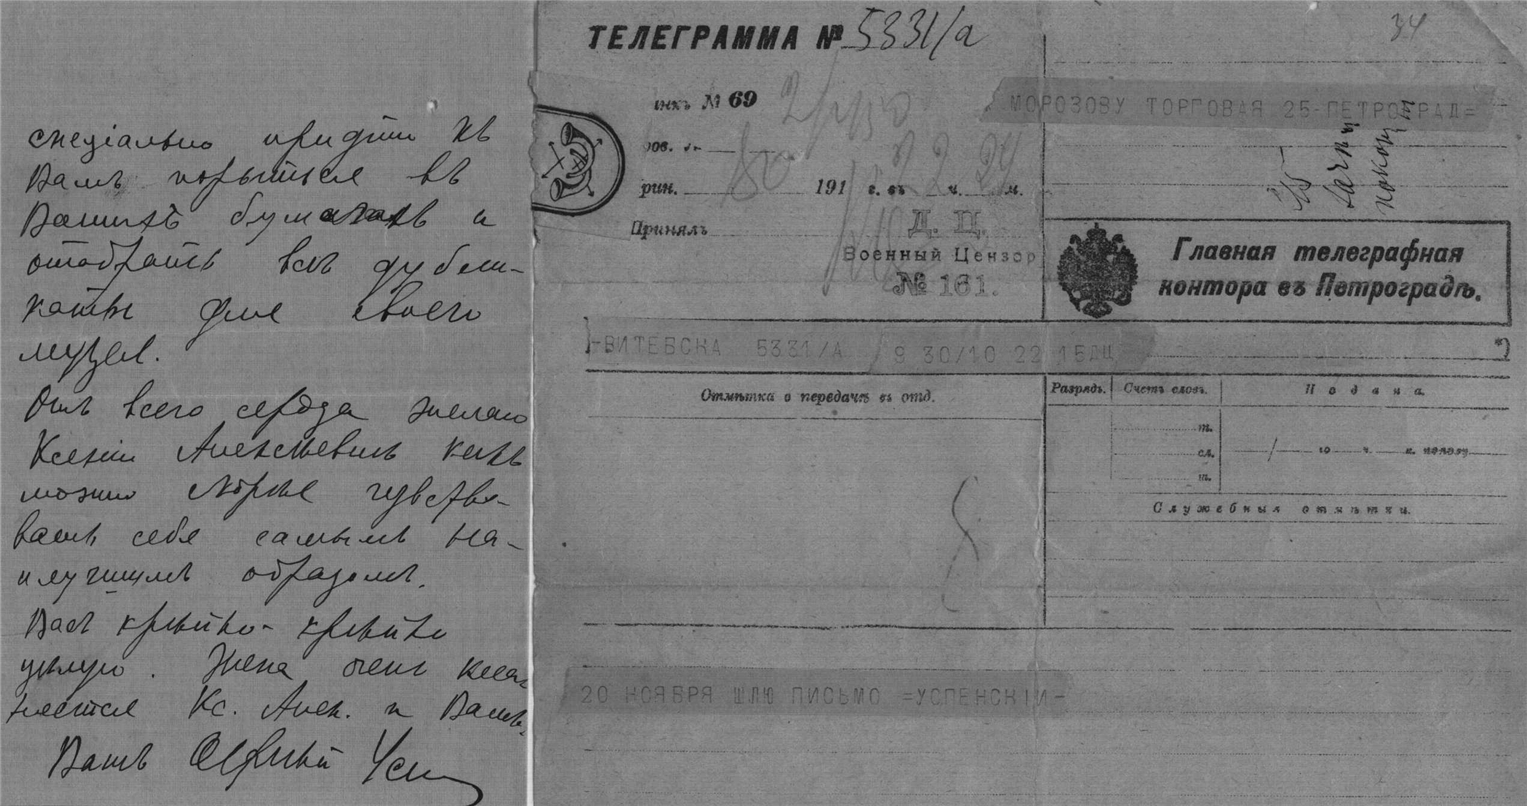 спецiально придти къ
Вамъ порыться въ
Вашихъ бумагахъ и
отобрать всѣ дубли-
каты для своего
музея.
Отъ всего сердца желаю
Ксенiи Алексѣевнѣ какъ
можно скорѣе чувство-
вать себя самымъ на-
илучшимъ образомъ.
Васъ крѣпко-крѣпко
цѣлую. Жена очень кла-
няется Кс. Алек. и Вамъ.
Вашъ Усп
ТЕЛЕГРАММА № 5331/а
34
инкъ № 69
ров.
рин. 191 г. въ ч. м.
Принялъ
Д. Ц.
Военный Цензор
№ 161.
МОРОЗОВУ ТОРГОВАЯ 25-ПЕТРОГРАД=
Главная телеграфная
контора въ Петроградѣ.
-ВИТЕБСКА 5331/А 9 30/10 22 15ДЦ
Отмѣтка о передачѣ въ отд.
Разрядъ. Счетъ словъ. Подана.
т.
сл.
т.
/ го ч. м. пололу
Служебныя отмѣтки.
20 НОЯБРЯ ШЛЮ ПИСЬМО =УСПЕНСКIЙ-